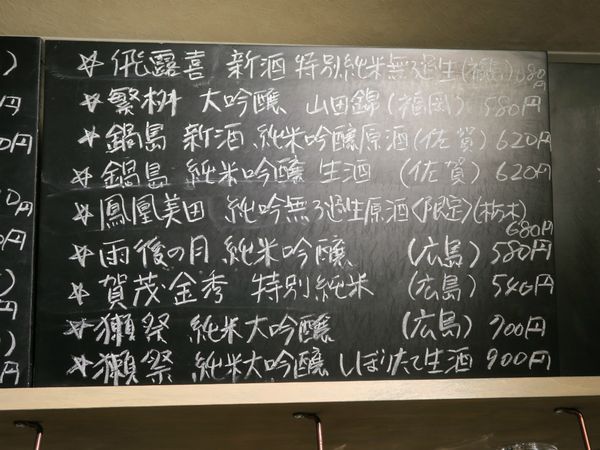 ☆飛露喜 新酒 特別純米無ろ過生(福島)
☆繁桝 大吟醸 山田錦(福岡) 580円
☆鍋島 新酒 純米吟醸原酒(佐賀) 620円
☆鍋島 純米吟醸 生酒 (佐賀) 620円
☆鳳凰美田 純吟無ろ過生原酒〈限定〉(栃木) 680円
☆雨後の月 純米吟醸 (広島) 580円
☆賀茂金秀 特別純米 (広島) 540円
☆獺祭 純米大吟醸 (広島) 700円
☆獺祭 純米大吟醸 しぼりたて生酒 900円